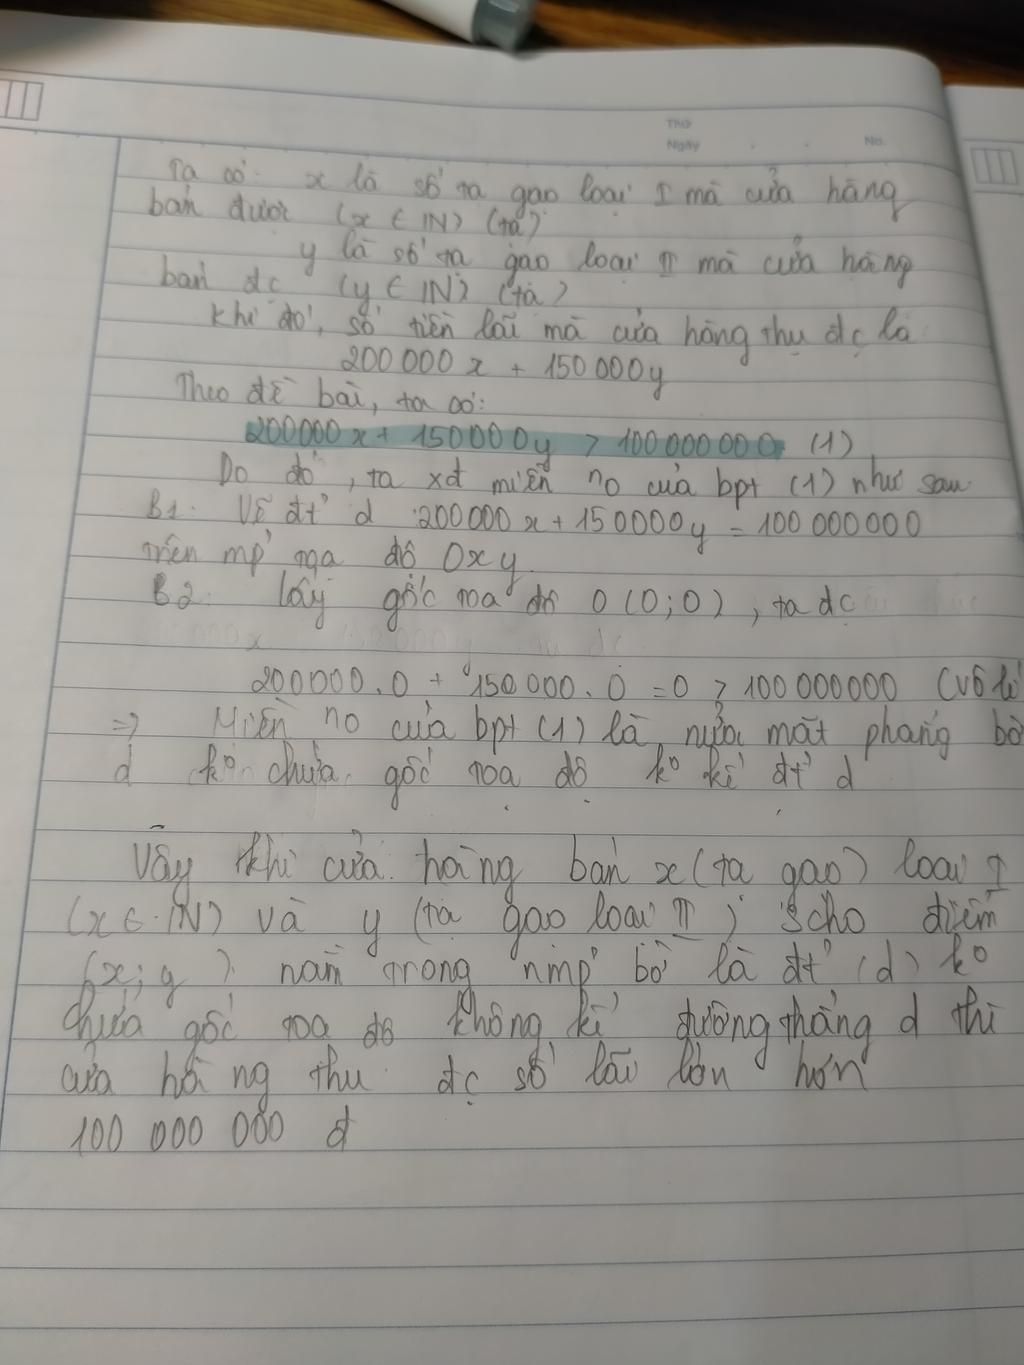 Thứ
Ngày No.
Ta có: x là số tạ gạo loại I mà cửa hàng
bán được (x ∈ IN) (tạ)
y là số tạ gạo loại II mà cửa hàng
bán đc (y ∈ IN) (tạ)
Khi đó, số tiền lãi mà cửa hàng thu đc là
200 000 x + 150 000y
Theo đề bài, ta có:
200000 x + 150000y > 100 000 000 (1)
Do đó, ta xđ miền no của bpt (1) như sau
B1: Vẽ đt' d : 200000 x + 150000y = 100 000000
trên mp' tọa độ Oxy
B2: lấy gốc tọa độ O (0;0), ta đc
200000.0 + 150 000.0 = 0 > 100 000000 (vô lí
=> Miền no của bpt (1) là nửa mặt phẳng bờ
d ko chứa gốc tọa độ ko kể đt' d
Vậy khi cửa hàng bán x (tạ gạo) loại I
(x ∈ IN) và y (tạ gạo loại II) cho điểm
(x; y) nằm trong nmp' bờ là đt' (d) ko
chứa gốc tọa độ không kể đường thẳng d thì
cửa hàng thu đc số lãi lớn hơn
100 000 000 đ